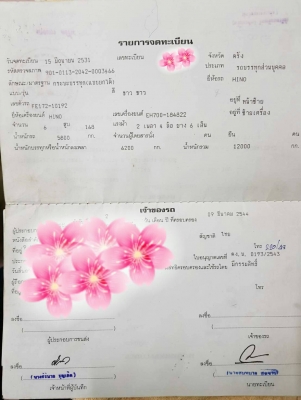 รายการจดทะเบียน
วันจดทะเบียน 15 มิถุนายน 2531 เลขทะเบียน จังหวัด ตรัง
รหัสตรวจสภาพ 901-0113-2042-0003466 ประเภท รถบรรทุกส่วนบุคคล
ลักษณะ/มาตรฐาน กระบะบรรทุก ยี่ห้อรถ HINO
แบบ/รุ่น สี ขาว ขาว
เลขตัวรถ FE172-10192 อยู่ที่ หน้าซ้าย
ยี่ห้อเครื่องยนต์ HINO เลขเครื่องยนต์ EH700-184822 อยู่ที่ ซ้ายเครื่อง
จำนวน 6 สูบ 165 แรงม้า 2 เพลา 4 ล้อ ยาง 6 เส้น
น้ำหนักรถ 5800 กก. จำนวนผู้โดยสารนั่ง คน ยืน คน
น้ำหนักบรรทุกหรือน้ำหนักลงเพลา 6200 กก. น้ำหนักรวม 12000 กก.
เจ้าของรถ
วัน เดือน ปี ที่ครอบครอง 19 มีนาคม 2544
ผู้ประกอบ
สัญชาติ ไทย
โทร.
ใบอนุญาตเลขที่
มีกรรมสิทธิ์
โทร.
ลงชื่อ ลงชื่อ
ผู้ประกอบการขนส่ง เจ้าของรถ
ลงชื่อ ลงชื่อ
เจ้าหน้าที่ผู้บันทึก นายทะเบียน